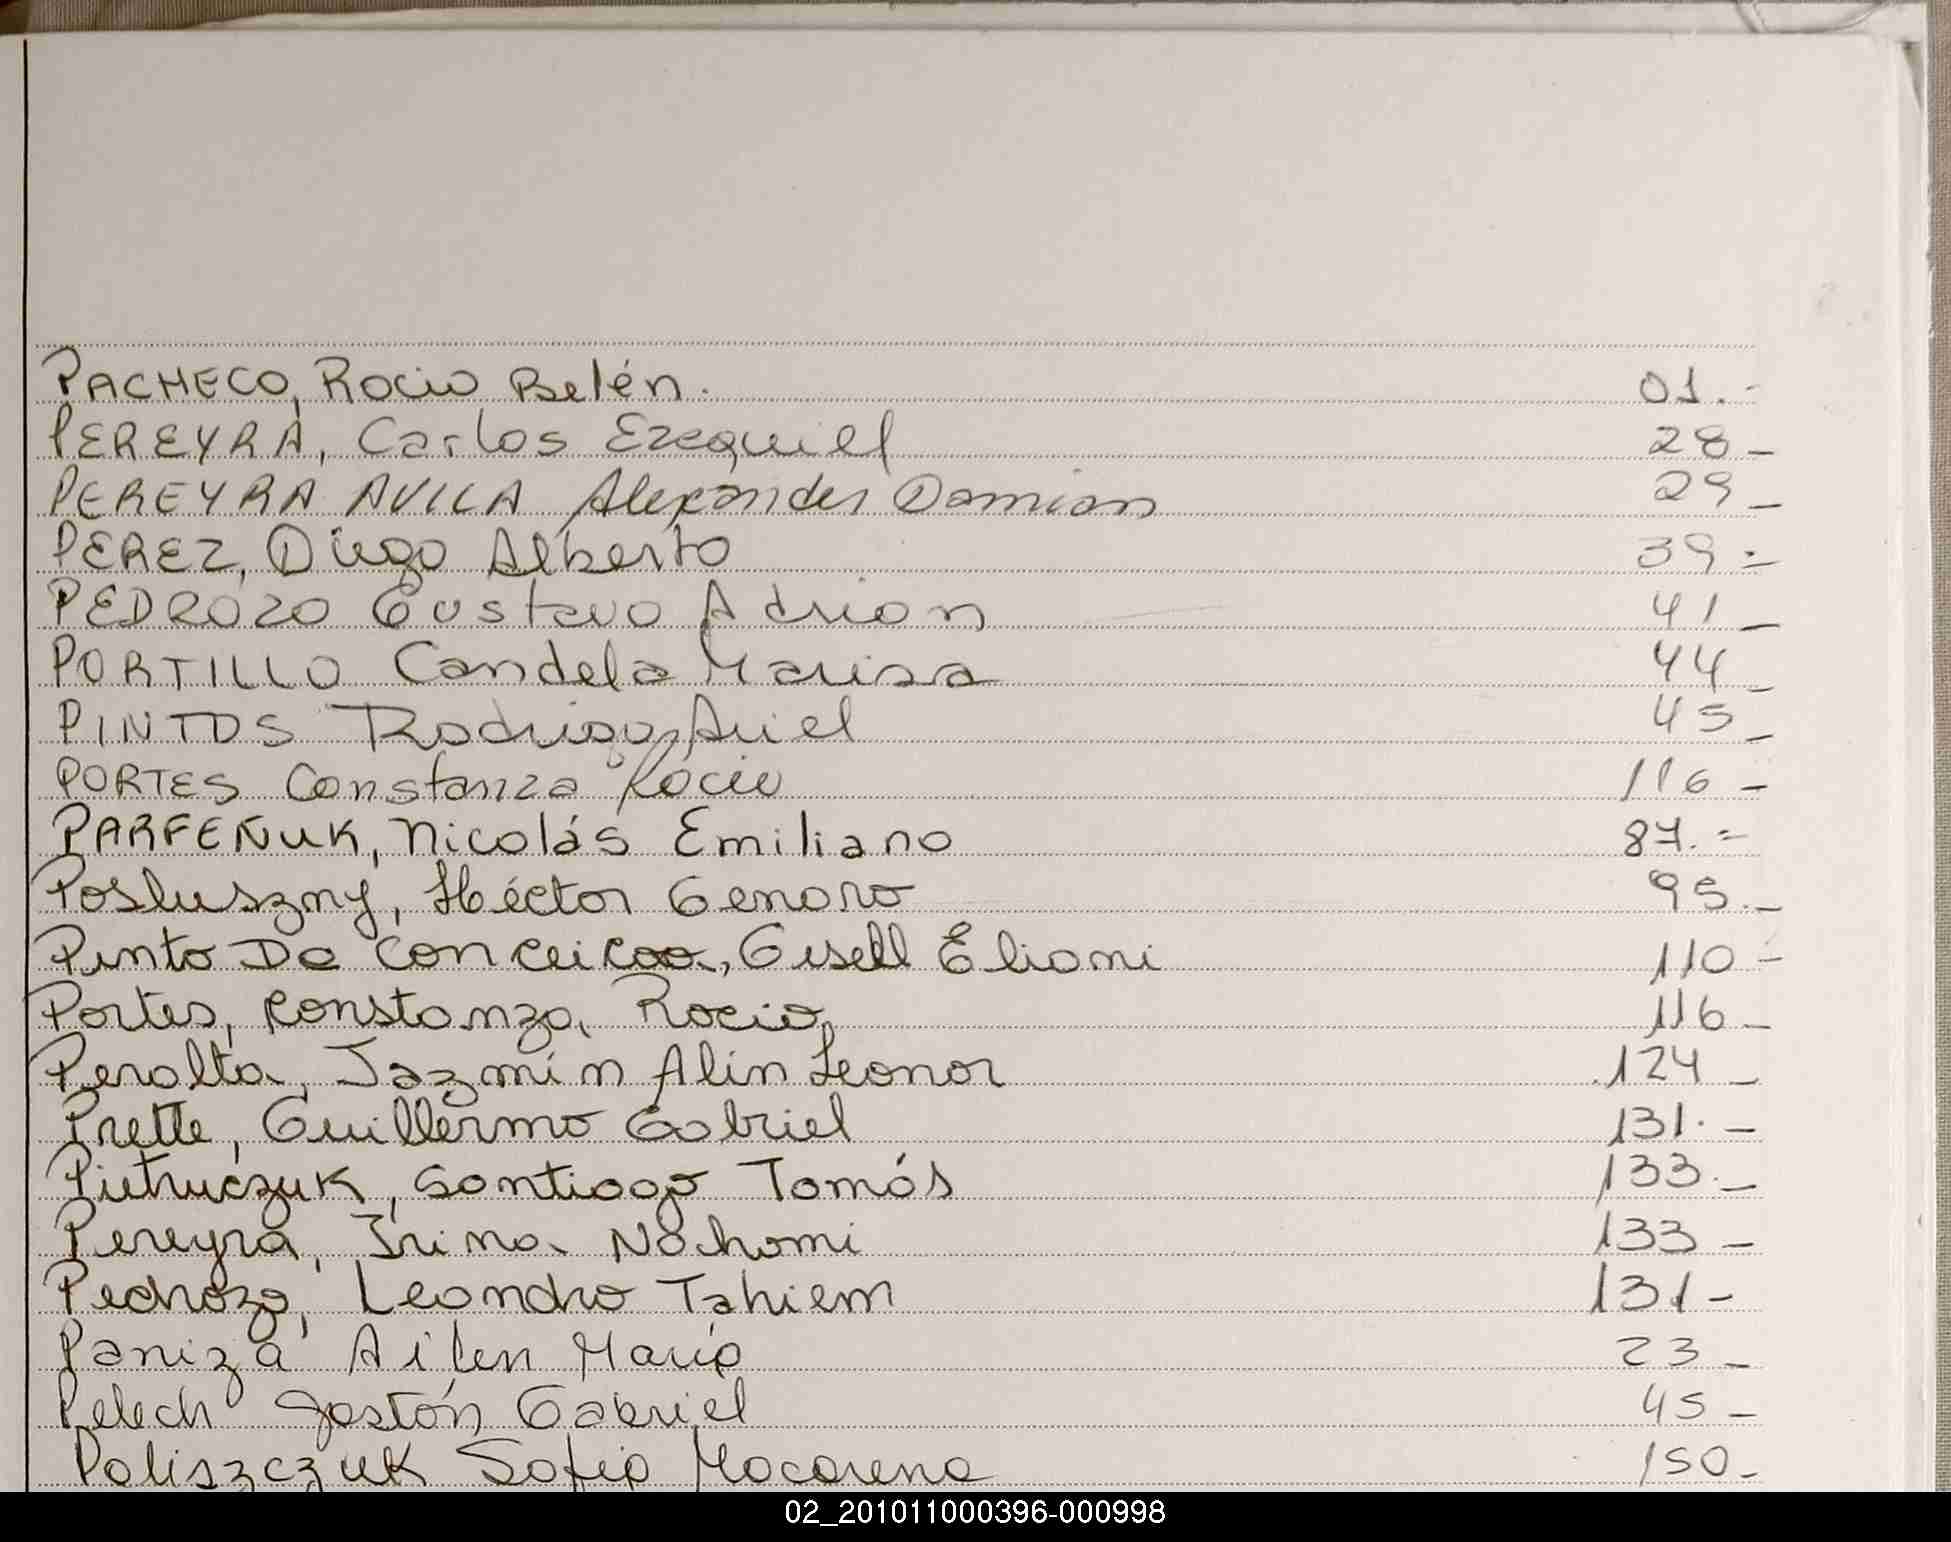 PACHECO, Rocio Belén. 01.-
PEREYRA, Carlos Ezequiel 28-
PEREYRA AVILA Alexander Damian 29-
PEREZ, Diego Alberto 39.-
PEDROZO Gustavo Adrian 41-
PORTILLO Candela Marisa 44-
PINTOS Rodrigo Ariel 45-
PORTES Constanza Rocio 116-
PARFEÑUK, Nicolás Emiliano 87.=
Posluszny, Héctor Genaro 95.-
Pinto Da Conceicao, Gisell Eliani 110-
Portes, Constanza Rocio 116-
Peralta, Jazmín Alin Leonor 124-
Prette, Guillermo Gabriel 131.-
Pietruczuk, Santiago Tomás 133.-
Pereyra, Irina Nochomi 133-
Pedrozo, Leandro Tahiem 131-
Paniza Ailen María 23-
Pelech Gastón Gabriel 45-
Poliszczuk Sofia Macarena 150-
02_201011000396-000998